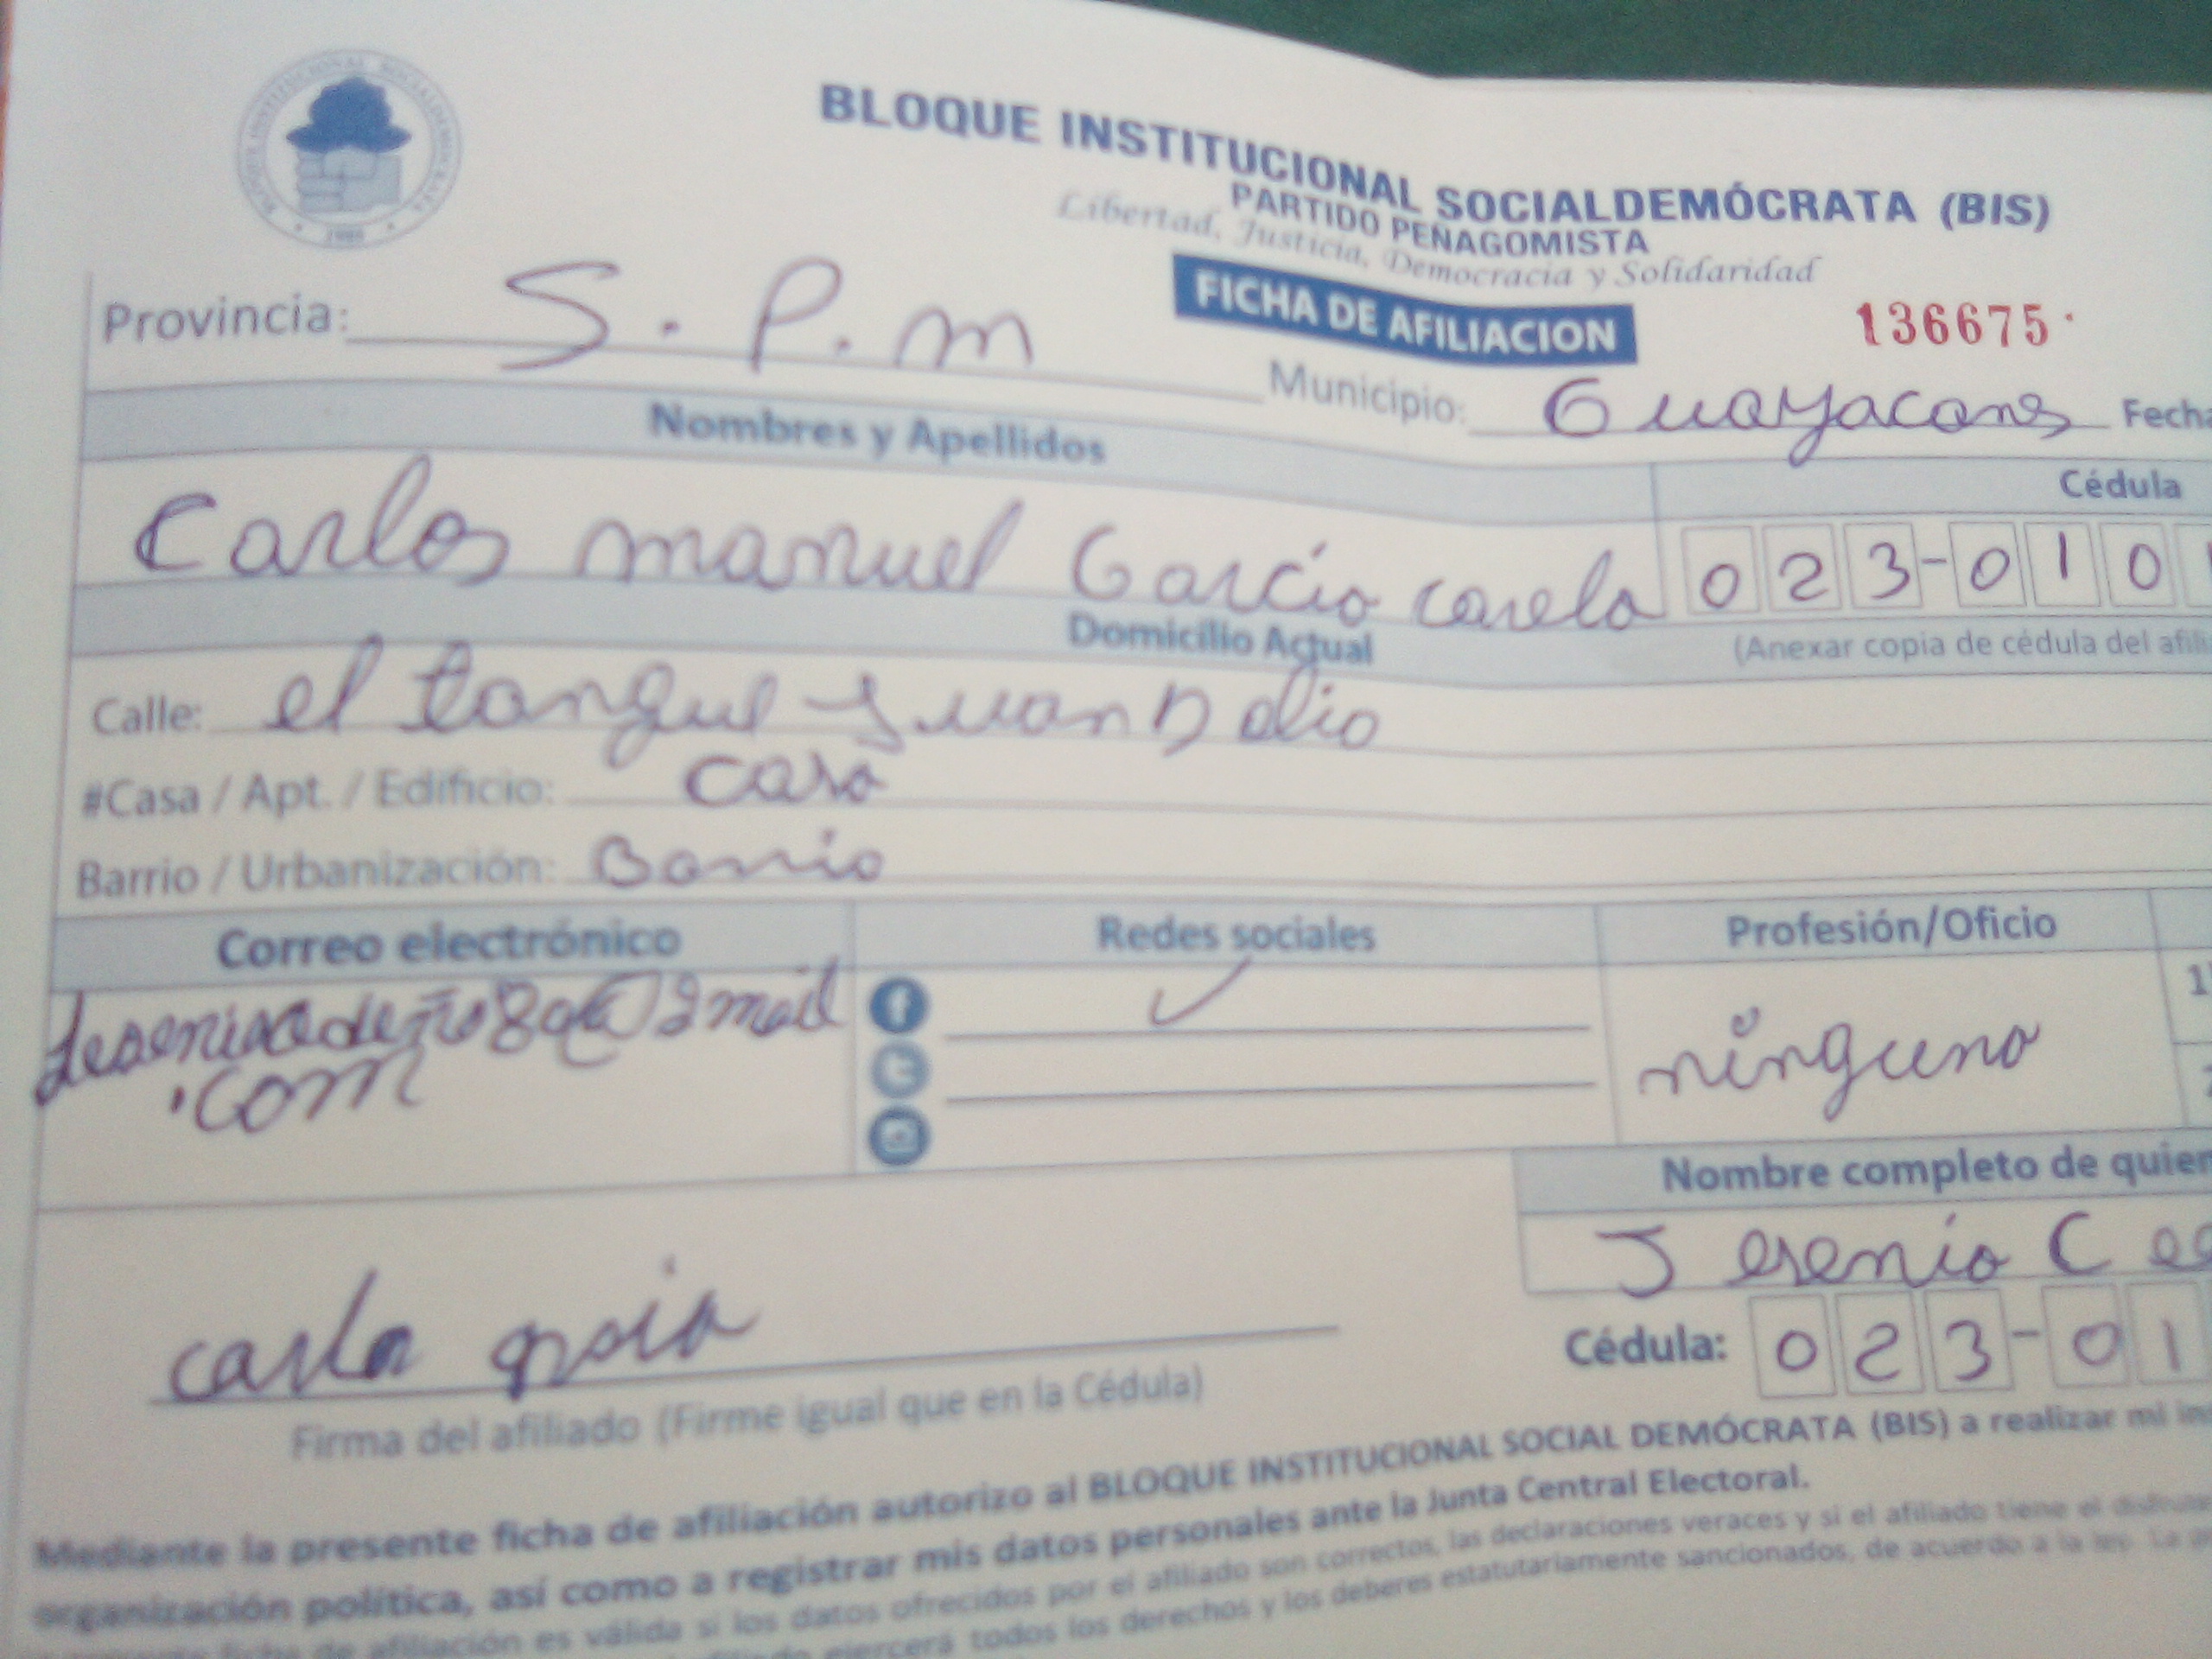 BLOQUE INSTITUCIONAL SOCIALDEMÓCRATA (BIS)
PARTIDO PEÑAGOMISTA
Libertad, Justicia, Democracia y Solidaridad
FICHA DE AFILIACION
136675
Provincia: S. P. m
Municipio: Guayacanes Fecha
Nombres y Apellidos
Cédula
Carlos manuel Garcia carela
023-010
Domicilio Actual
(Anexar copia de cédula del afili
Calle: el tanque Juan Dolio
#Casa / Apt. / Edificio: casa
Barrio / Urbanización: Barrio
Correo electrónico
Redes sociales
Profesión/Oficio
@gmail
.com
ninguno
Nombre completo de quien
Jesenia
Cédula: 023-01
carlos
Firma del afiliado (Firme igual que en la Cédula)
Mediante la presente ficha de afiliación autorizo al BLOQUE INSTITUCIONAL SOCIAL DEMÓCRATA (BIS) a realizar mi
organización política, así como a registrar mis datos personales ante la Junta Central Electoral.
ficha de afiliación es válida si los datos ofrecidos por el afiliado son correctos, las declaraciones veraces y si el afiliado tiene el
ejercerá todos los derechos y los deberes estatutariamente sancionados, de acuerdo a la ley. La